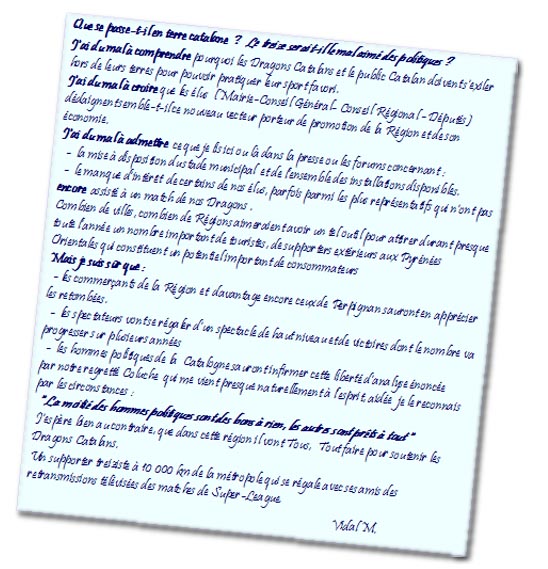 Que se passe-t-il en terre catalane ? Le treize serait-il le mal aimé des politiques ?
J'ai du mal à comprendre pourquoi les Dragons Catalans et le public Catalan doivent s'exiler
hors de leurs terres pour pouvoir pratiquer leur sport favori.
J'ai du mal à croire que les élus (Mairie-Conseil Général- Conseil Régional-Députés)
dédaignent semble-t-il ce nouveau vecteur porteur de promotion de la Région et de son
économie.
J'ai du mal à admettre ce que je lis ici ou là dans la presse ou les forums concernant :
- la mise à disposition du stade municipal et de l'ensemble des installations disponibles.
- le manque d'intérêt de certains de nos élus, parfois parmi les plus représentatifs qui n'ont pas
encore assisté à un match de nos Dragons.
Combien de villes, combien de Régions aimeraient avoir un tel outil pour attirer durant presque
toute l'année un nombre important de touristes, de supporters extérieurs aux Pyrénées
Orientales qui constituent un potentiel important de consommateurs
Mais je suis sûr que :
- les commerçants de la Région et davantage encore ceux de Perpignan sauront en apprécier
les retombées.
- les spectateurs vont se régaler d'un spectacle de haut niveau et de victoires dont le nombre va
progresser sur plusieurs années
- les hommes politiques de la Catalogne sauront infirmer cette liberté d'analyse énoncée
par notre regretté Coluche qui me vient presque naturellement à l'esprit, aidée je le reconnais
par les circonstances :
"La moitié des hommes politiques sont des bons à rien, les autres sont prêts à tout"
J'espère bien au contraire, que dans cette région il vont Tous, Tout faire pour soutenir les
Dragons Catalans.
Un supporter treiziste à 10 000 km de la métropole qui se régale avec ses amis des
retransmissions télévisées des matches de Super-League
Vidal M.